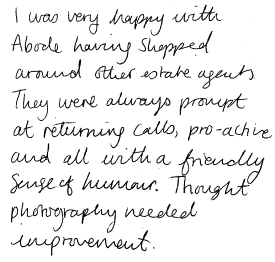 I was very happy with
Abode having shopped
around other estate agents
They were always prompt
at returning calls, pro-active
and all with a friendly
sense of humour. Thought
photography needed
improvement.